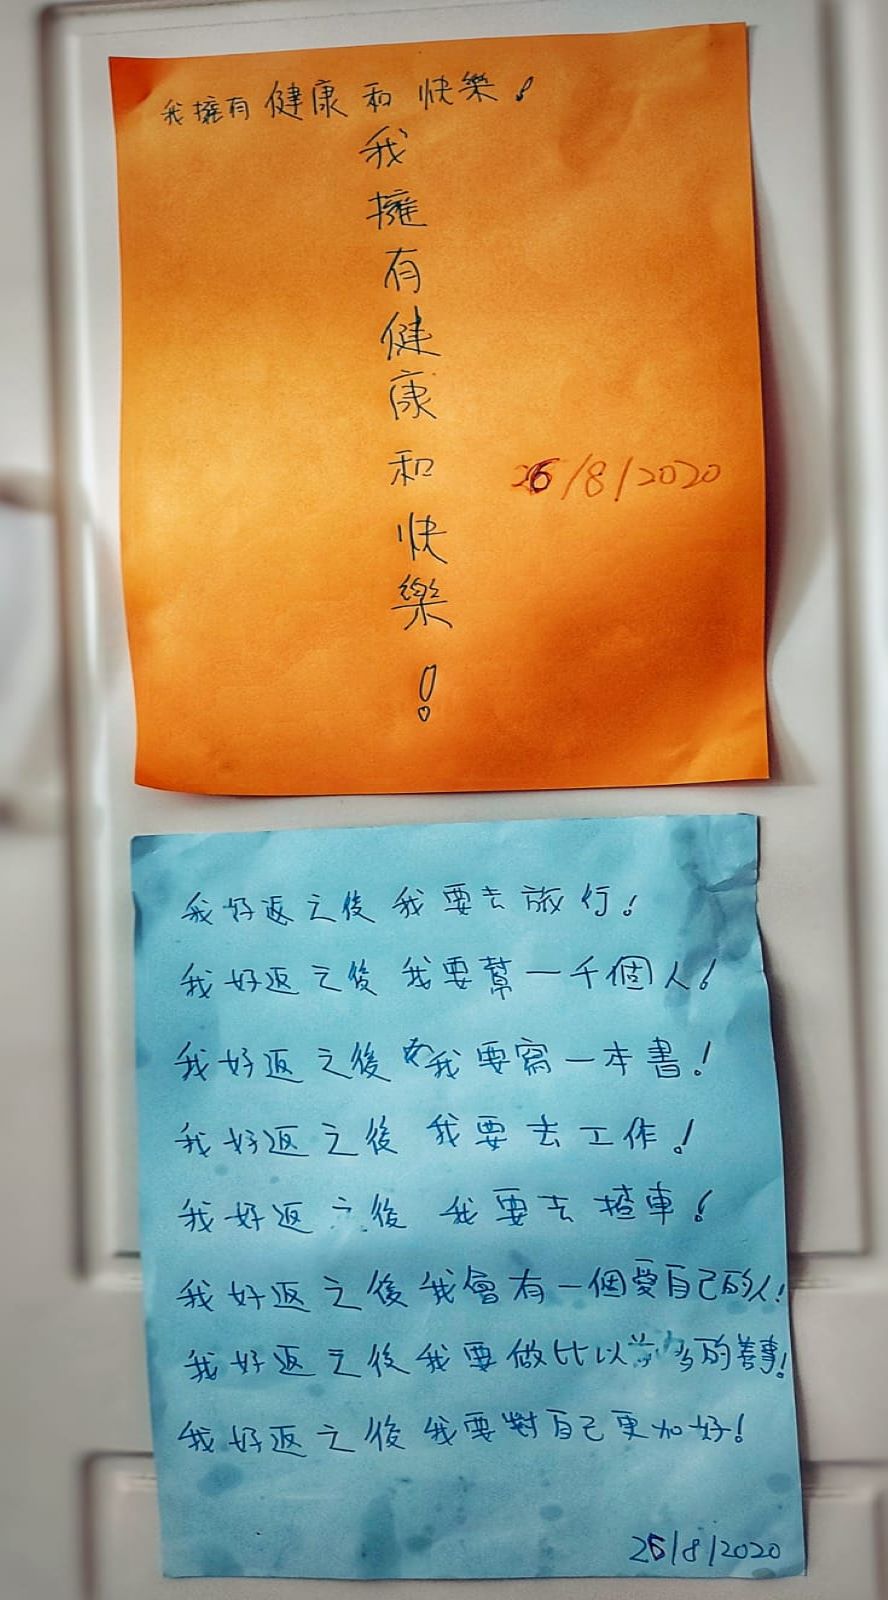 我擁有健康和快樂!
我擁有健康和快樂!
26/8/2020
我好返之後我要去旅行!
我好返之後我要幫一千個人!
我好返之後我要寫一本書!
我好返之後我要去工作!
我好返之後我要去揸車!
我好返之後我會有一個愛自己的人!
我好返之後我要做比以前多的善事!
我好返之後我要對自己更加好!
26/8/2020